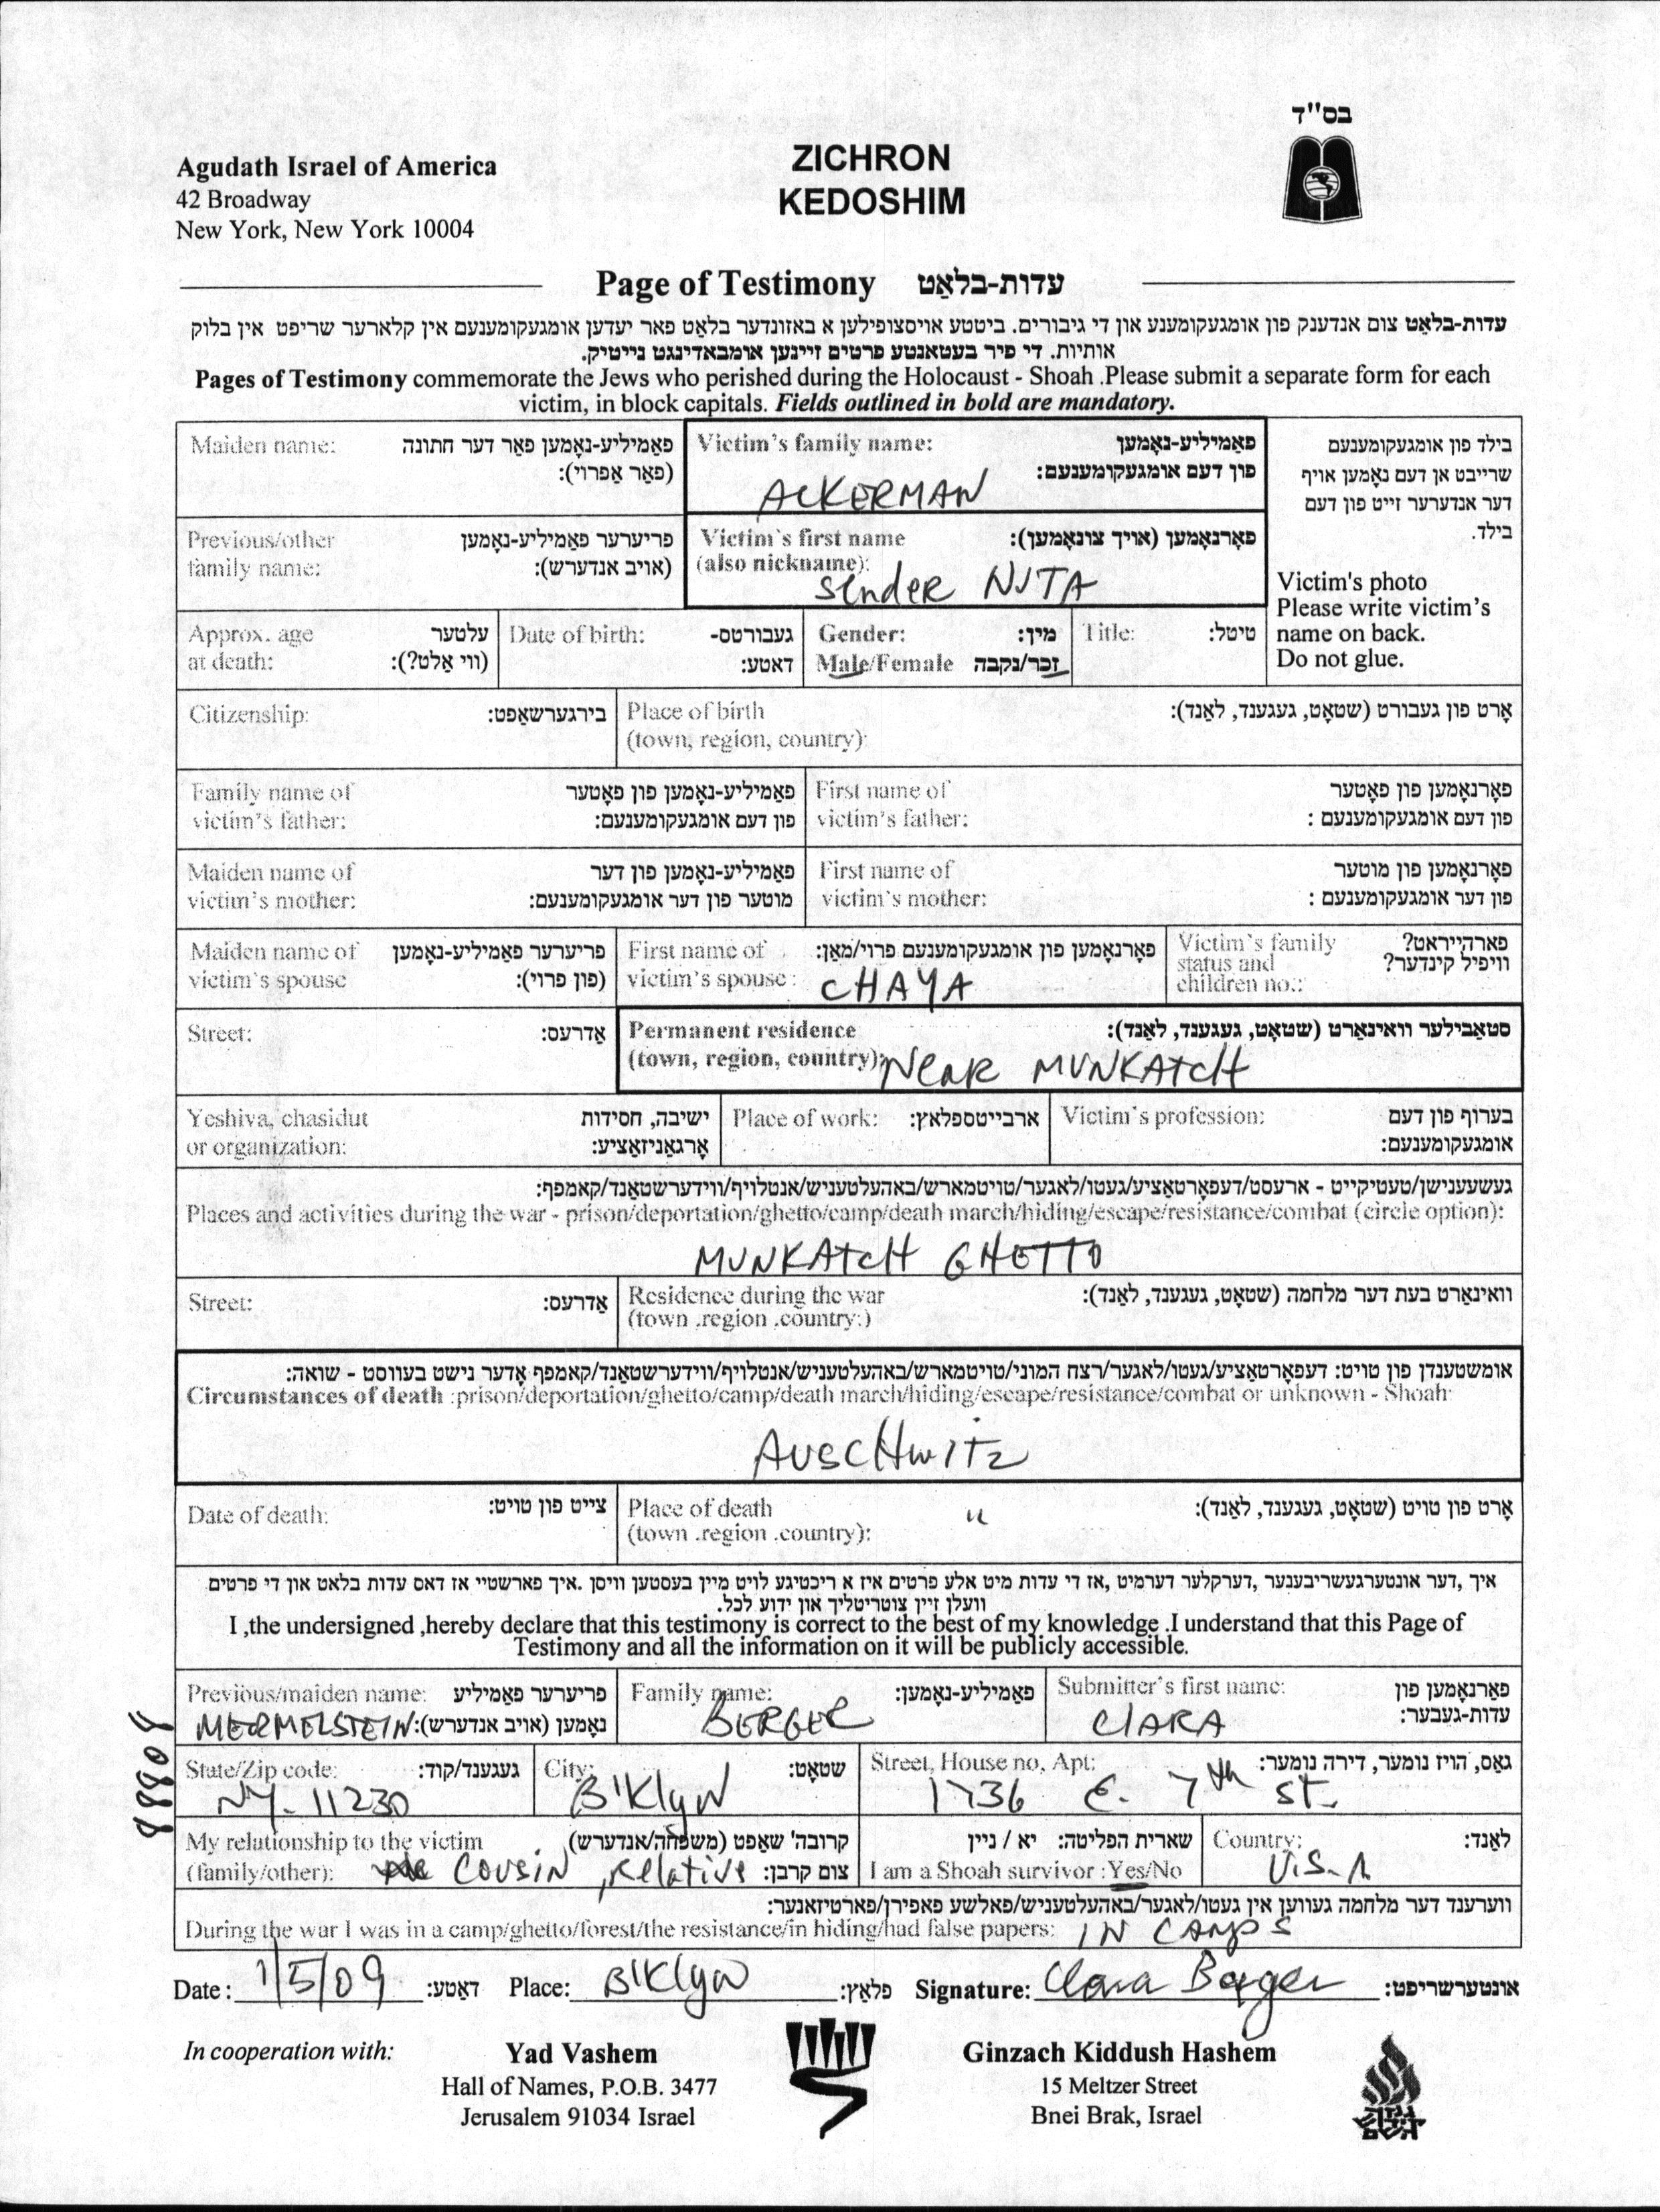 בס"ד
Agudath Israel of America
42 Broadway
New York, New York 10004
ZICHRON
KEDOSHIM
Page of Testimony עדות-בלאַט
עדות-בלאַט צום אנדענק פון אומגעקומענע און די גיבורים. ביטטע אויסצופילען א באזונדער בלאַט פאר יעדען אומגעקומענעם אין קלארער שריפט אין בלוק
אותיות. די פיר בעטאנטע פרטים זיינען אומבאדינגט נייטיק.
Pages of Testimony commemorate the Jews who perished during the Holocaust - Shoah .Please submit a separate form for each
victim, in block capitals. Fields outlined in bold are mandatory.
Maiden name: פאַמיליע-נאָמען פאַר דער חתונה
(פאַר אַפרוי):
Victim's family name: פאַמיליע-נאָמען
פון דעם אומגעקומענעם:
ACKERMAN
Previous/other פריערער פאַמיליע-נאָמען
family name: (אויב אנדערש):
Victim's first name פאָרנאָמען (אויך צונאָמען):
(also nickname):
Sender NUTA
בילד פון אומגעקומענעם
שרייבט אן דעם נאָמען אויף
דער אנדערער זייט פון דעם
בילד.
Victim's photo
Please write victim's
name on back.
Do not glue.
Approx. age עלטער
at death: (ווי אַלט?):
Date of birth: געבורטס-
דאַטע:
Gender: מין:
Male/Female זכר/נקבה
Title: טיטל:
Citizenship: בירגערשאַפט:
Place of birth אָרט פון געבורט (שטאָט, געגענד, לאַנד):
(town, region, country):
Family name of פאַמיליע-נאָמען פון פאָטער
victim's father: פון דעם אומגעקומענעם:
First name of פאָרנאָמען פון פאָטער
victim's father: פון דעם אומגעקומענעם :
Maiden name of פאַמיליע-נאָמען פון דער
victim's mother: מוטער פון דער אומגעקומענעם:
First name of פאָרנאָמען פון מוטער
victim's mother: פון דער אומגעקומענעם :
Maiden name of פריערער פאַמיליע-נאָמען
victim's spouse (פון פרוי):
First name of פאָרנאָמען פון אומגעקומענעם פרוי/מאַן:
victim's spouse : CHAYA
Victim's family פארהייראט?
status and וויפיל קינדער?
children no.:
Street: אַדרעס:
Permanent residence סטאַבילער וואינאָרט (שטאָט, געגענד, לאַנד):
(town, region, country): Near MUNKATCH
Yeshiva, chasidut ישיבה, חסידות
or organization: אָרגאַניזאַציע:
Place of work: ארבייטספלאץ:
Victim's profession: בערוף פון דעם
אומגעקומענעם:
געשעענישן/טעטיקייט - ארעסט/דעפאָרטאַציע/געטו/לאגער/טויטמארש/באהעלטעניש/אנטלויף/ווידערשטאַנד/קאמפף:
Places and activities during the war - prison/deportation/ghetto/camp/death march/hiding/escape/resistance/combat (circle option):
MUNKATCH GHETTO
Street: אַדרעס:
Residence during the war וואינאָרט בעת דער מלחמה (שטאָט, געגענד, לאַנד):
(town .region .country:)
אומשטענדן פון טויט: דעפאָרטאַציע/געטו/לאגער/רצח המוני/טויטמארש/באהעלטעניש/אנטלויף/ווידערשטאַנד/קאמפף אָדער נישט בעווסט - שואה:
Circumstances of death :prison/deportation/ghetto/camp/death march/hiding/escape/resistance/combat or unknown - Shoah:
AUSCHwITz
Date of death: צייט פון טויט:
Place of death " אָרט פון טויט (שטאָט, געגענד, לאַנד):
(town .region .country):
איך ,דער אונטערגעשריבענער ,דערקלער דערמיט ,אז די עדות מיט אלע פרטים איז א ריכטיגע לויט מיין בעסטען וויסן .איך פארשטיי אז דאס עדות בלאט און די פרטים
וועלן זיין צוטריטליך און ידוע לכל.
I ,the undersigned ,hereby declare that this testimony is correct to the best of my knowledge .I understand that this Page of
Testimony and all the information on it will be publicly accessible.
Previous/maiden name: פריערער פאַמיליע
MERMELSTEIN נאָמען (אויב אנדערש):
Family name: פאַמיליע-נאָמען:
BERGER
Submitter's first name: פאַרנאָמען פון
עדות-געבער:
ClARA
State/Zip code: געגענד/קוד:
NY- 11230
City: שטאָט:
B'Klyn
Street, House no, Apt: גאַס, הויז נומער, דירה נומער:
1736 E. 7th St.
My relationship to the victim קרובה' שאַפט (משפחה/אנדערש)
(family/other): COUSIN, Relative צום קרבן:
שארית הפליטה: יא / ניין
I am a Shoah survivor :Yes/No
Country: לאַנד:
U.S.A
ווערענד דער מלחמה געווען אין געטו/לאגער/באהעלטעניש/פאלשע פאפירן/פארטיזאנער:
During the war I was in a camp/ghetto/forest/the resistance/in hiding/had false papers: IN CAMPS
Date : 1/5/09 דאַטע: Place: B'Klyn פלאַץ: Signature: Clara Berger אונטערשריפט:
In cooperation with:
Yad Vashem
Hall of Names, P.O.B. 3477
Jerusalem 91034 Israel
Ginzach Kiddush Hashem
15 Meltzer Street
Bnei Brak, Israel